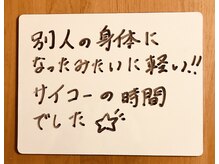 別人の身体に
なったみたいに軽い!!
サイコーの時間
でした☆